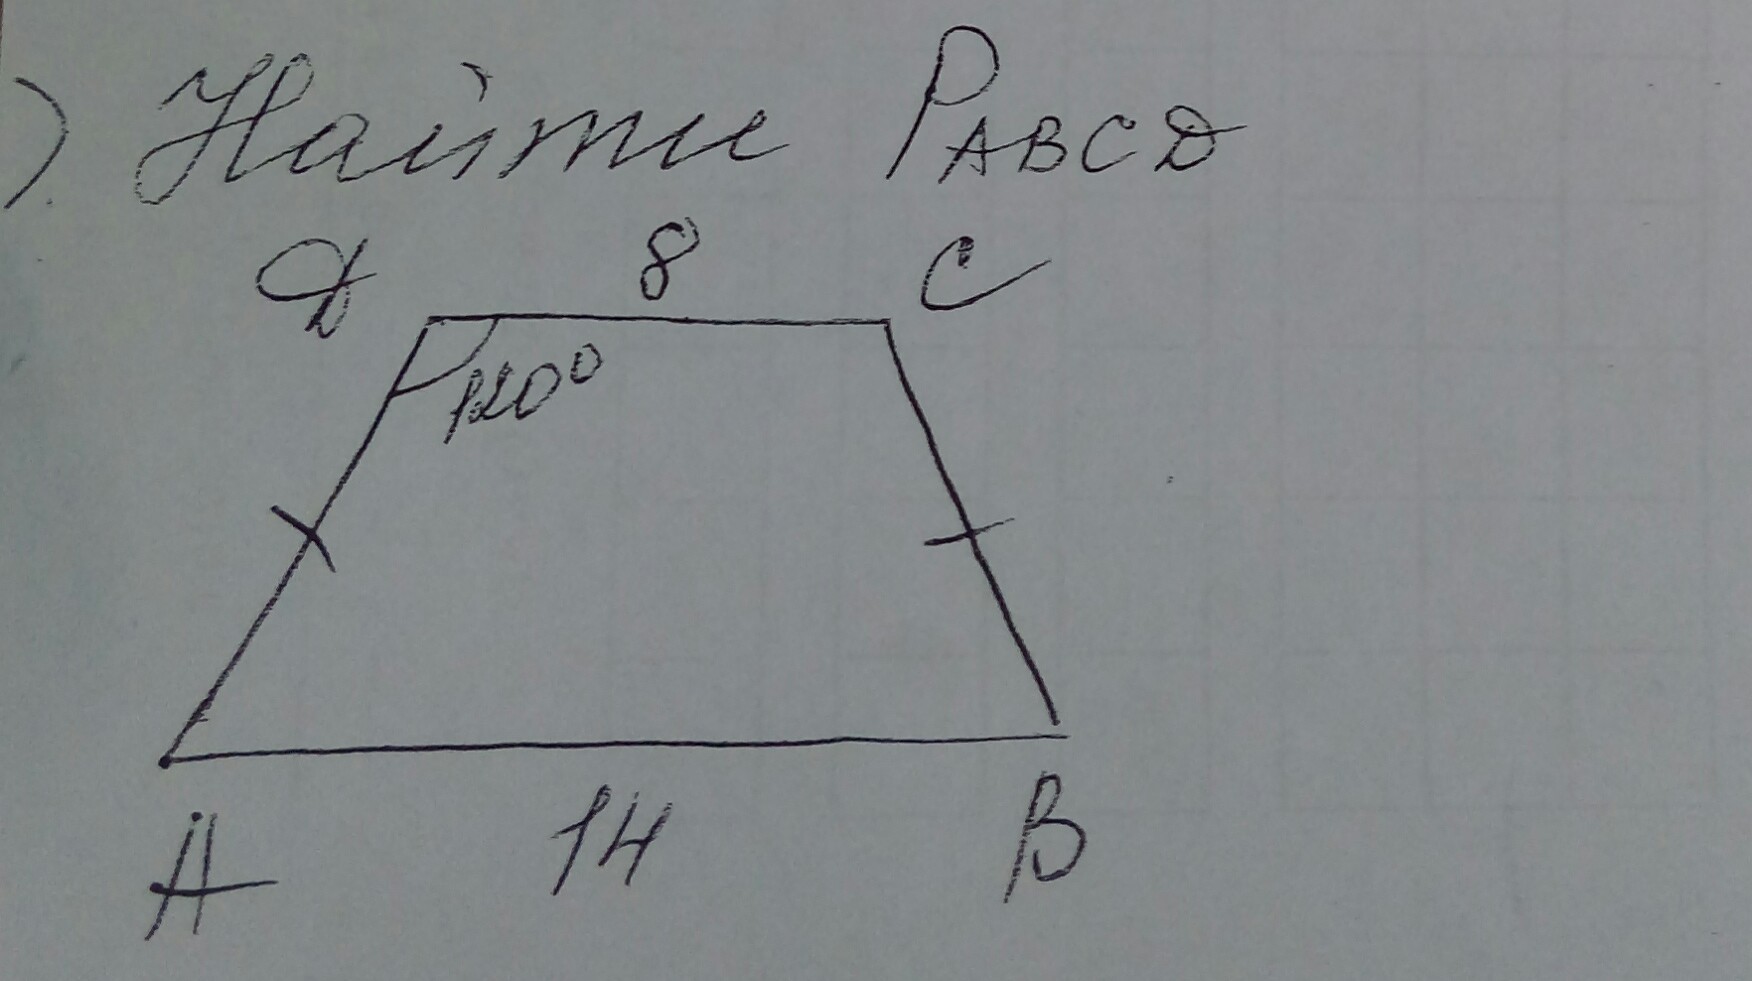 ). Найти P ABCD
D 8 C
120°
A 14 B